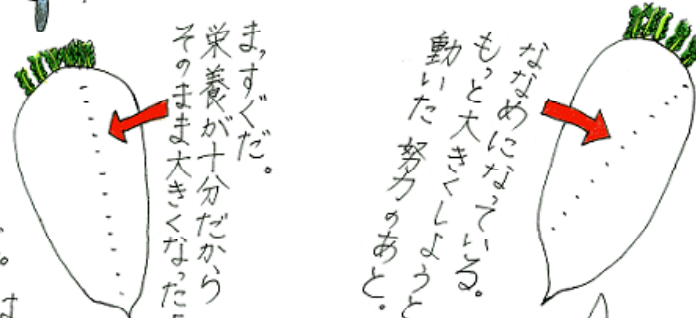 ななめになっている。
もっと大きくしようと
動いた 努力のあと。
まっすぐだ。
栄養が十分だから
そのまま大きくなった